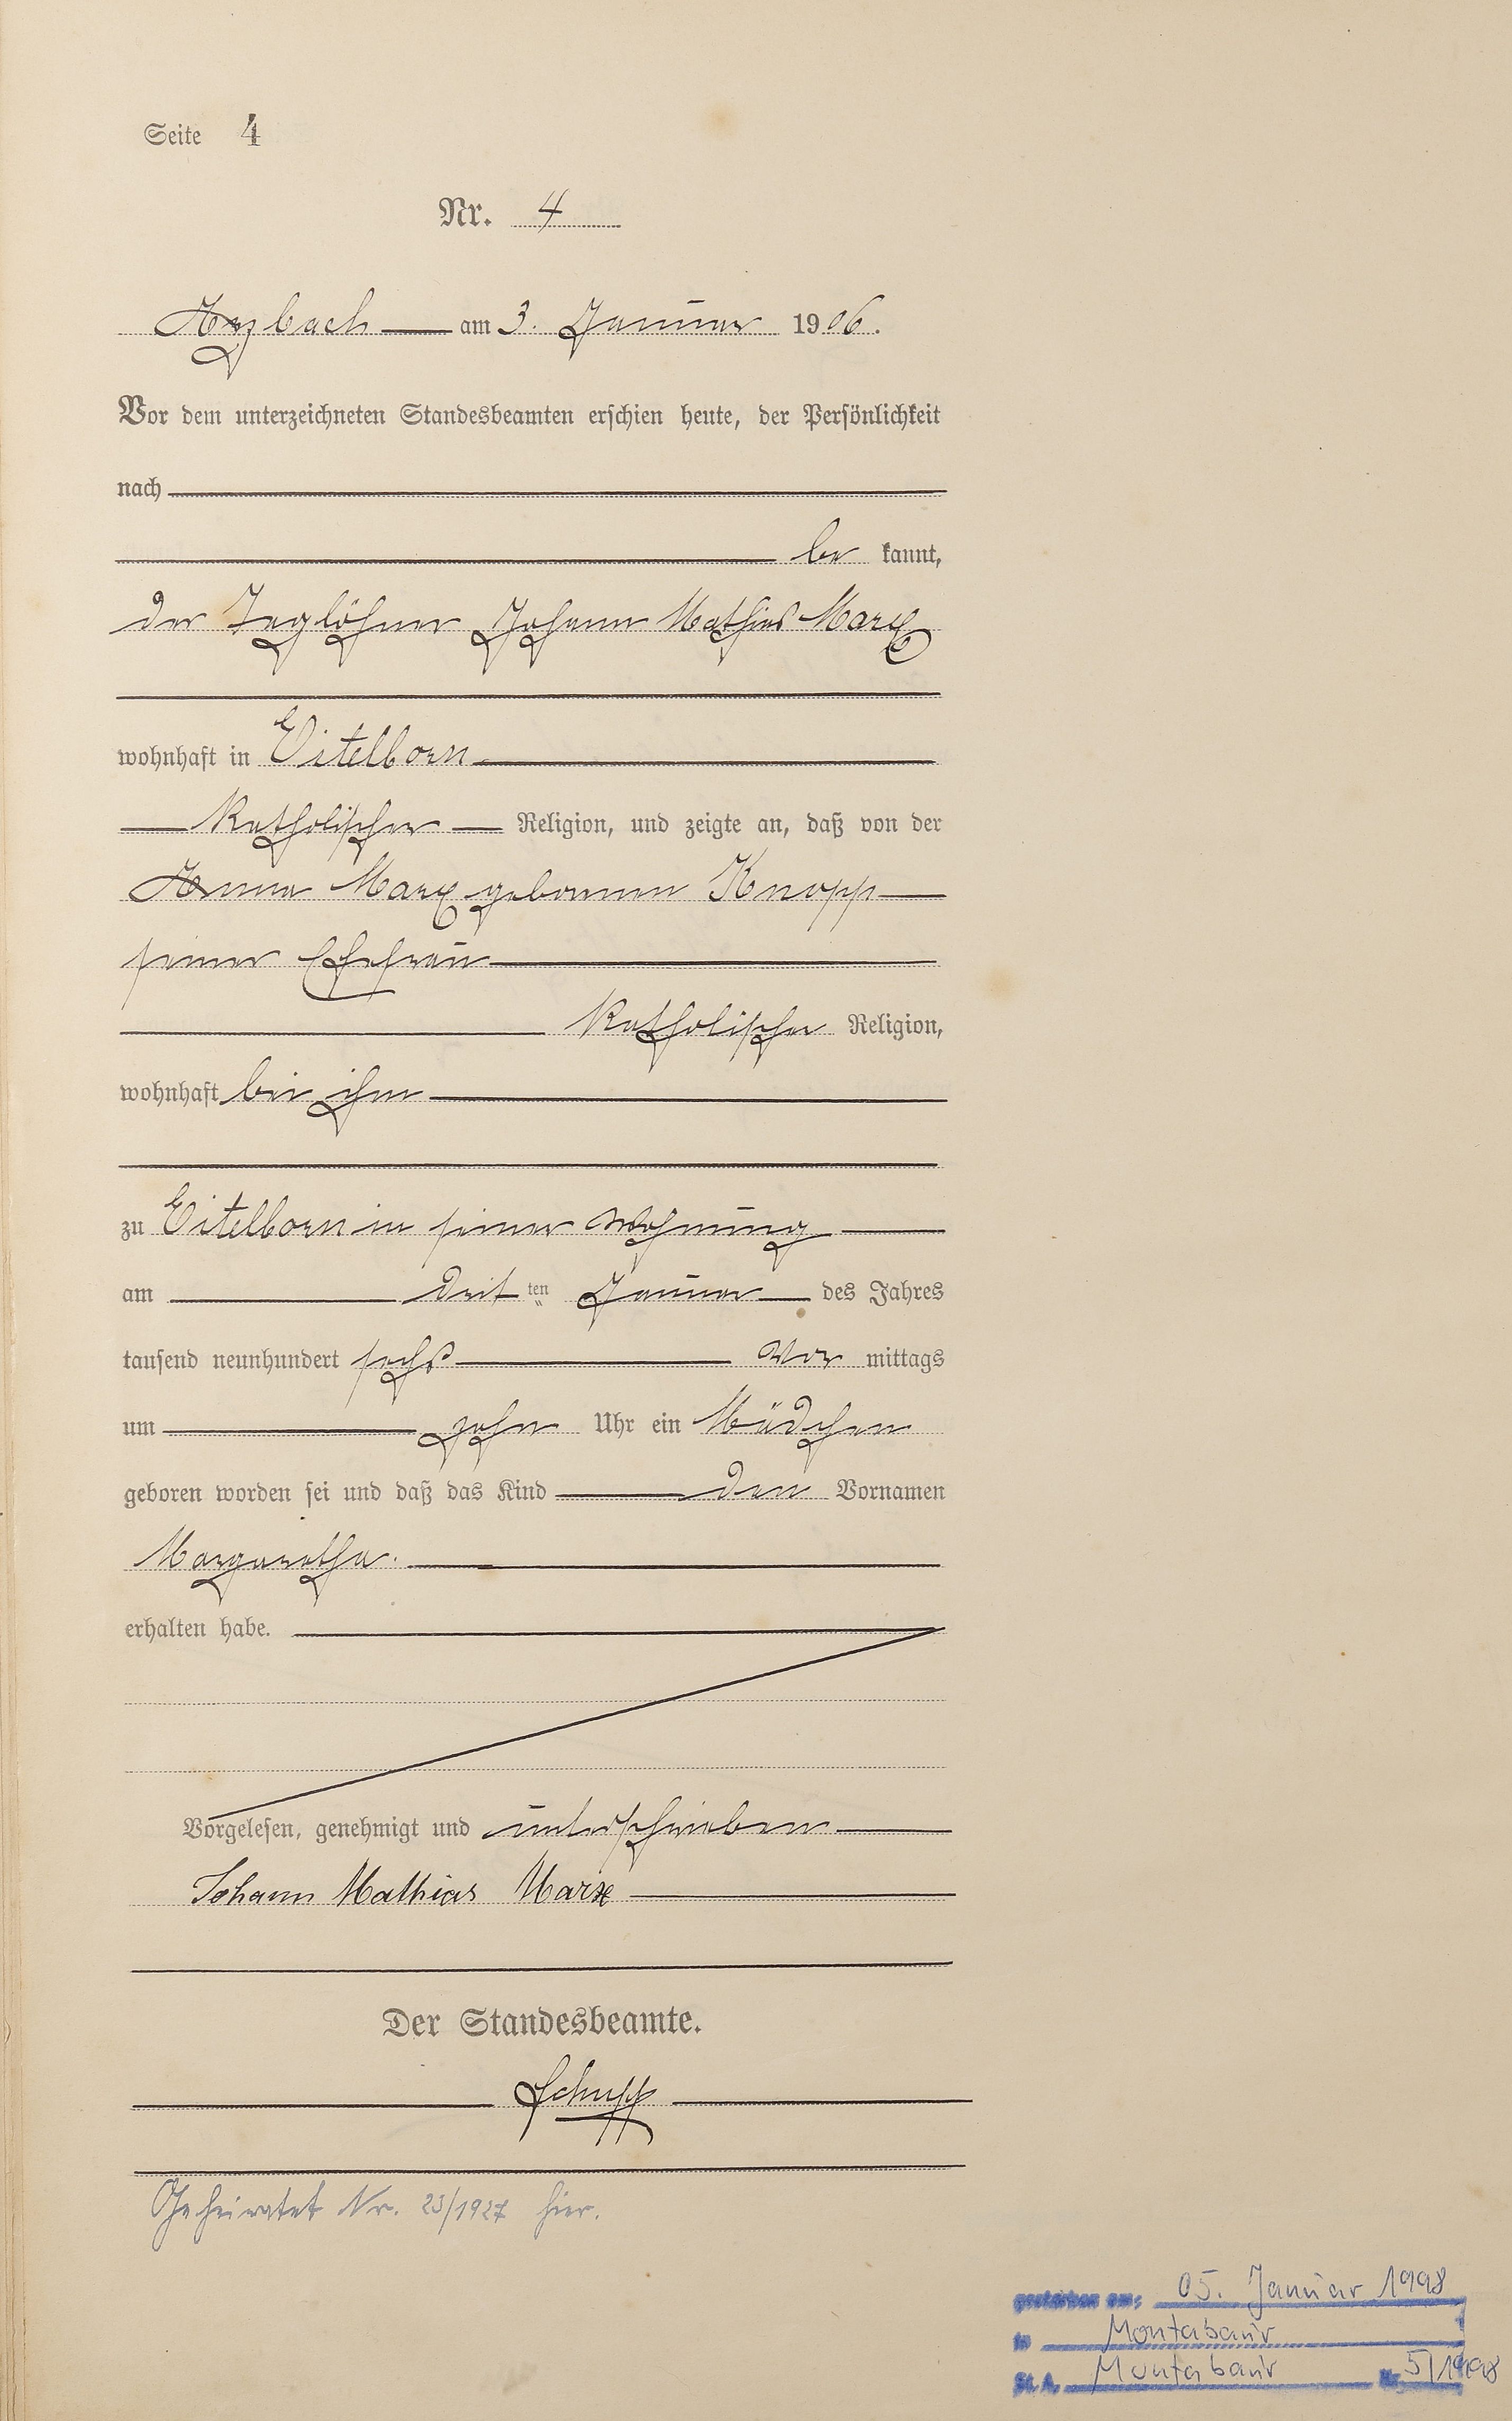 Seite 4
Nr. 4
Arzbach am 3. Januar 1906.
Vor dem unterzeichneten Standesbeamten erschien heute, der Persönlichkeit
nach
be kannt,
der Taglöhner Johann Mathias Marx
wohnhaft in Eitelborn
Katholischer Religion, und zeigte an, daß von der
Anna Marx geborenen Knopp
seiner Ehefrau
Katholischer Religion,
wohnhaft bei ihm
zu Eitelborn in seiner Wohnung
am drit ten Januar des Jahres
tausend neunhundert sechs Vor mittags
um zehn Uhr ein Mädchen
geboren worden sei und daß das Kind den Vornamen
Margaretha.
erhalten habe.
Vorgelesen, genehmigt und unterschrieben
Johann Mathias Marx
Der Standesbeamte.
Schupp
Geheiratet Nr. 23/1927 hier.
gestorben am: 05. Januar 1998
in Montabaur
St. A. Montabaur Nr. 5/1998